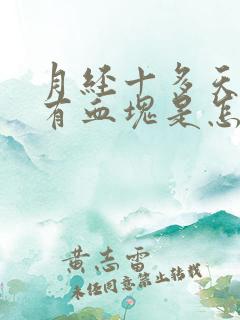 月经十多天
有血块是怎
黄志雷
未经同意禁止转载